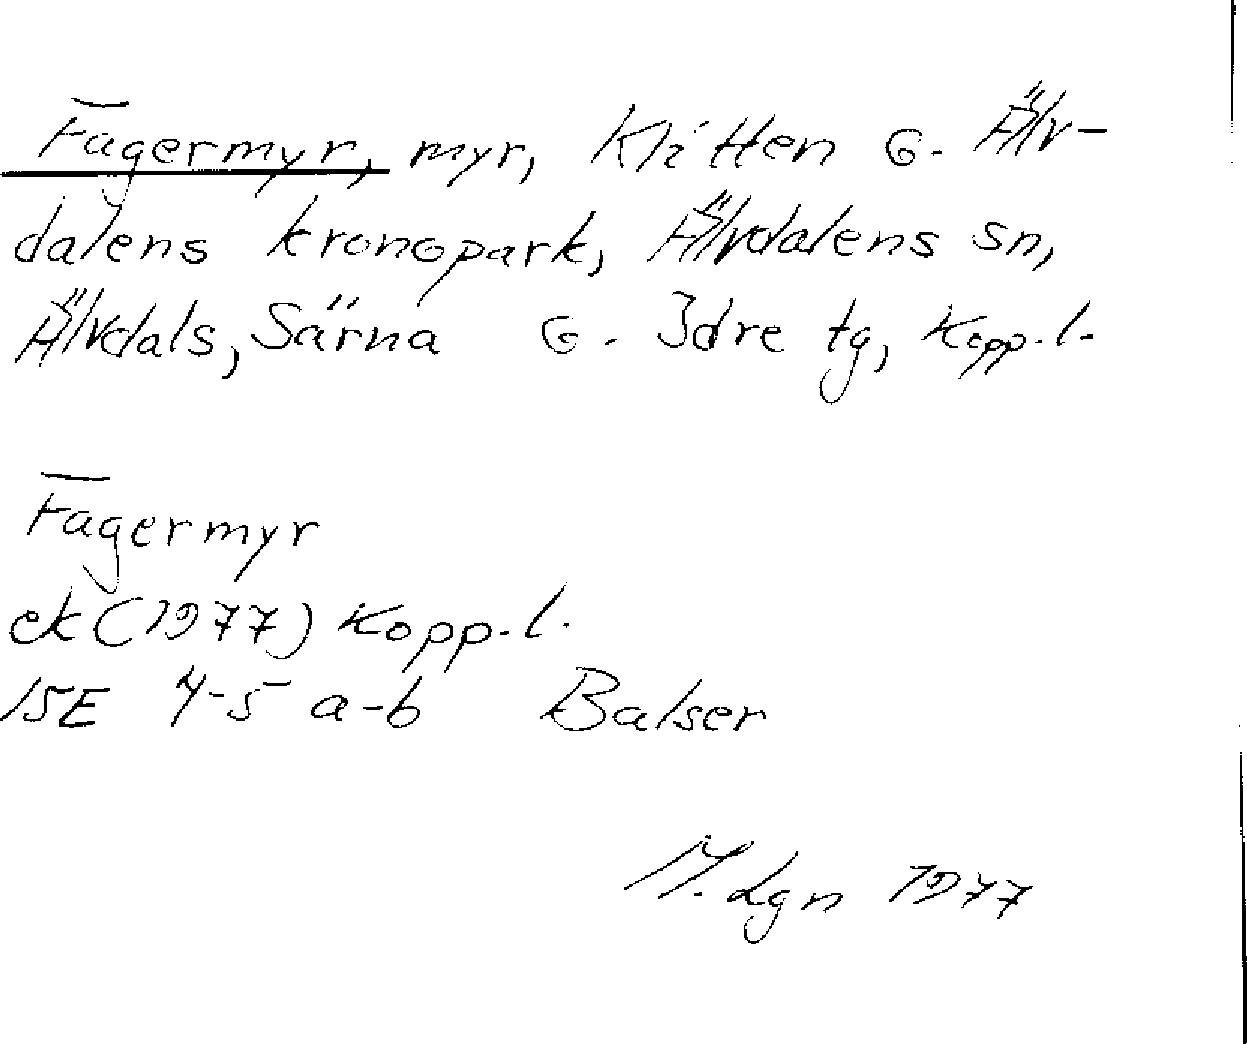 Fagermyr, myr, Klitten o. Älv-
dalens kronopark, Älvdalens sn,
Älvdals, Särna o. Idre tg, Kopp. l.
Fagermyr
ek (1977) Kopp. l.
15E 4-5 a-b Balser
M. Lgn 1977